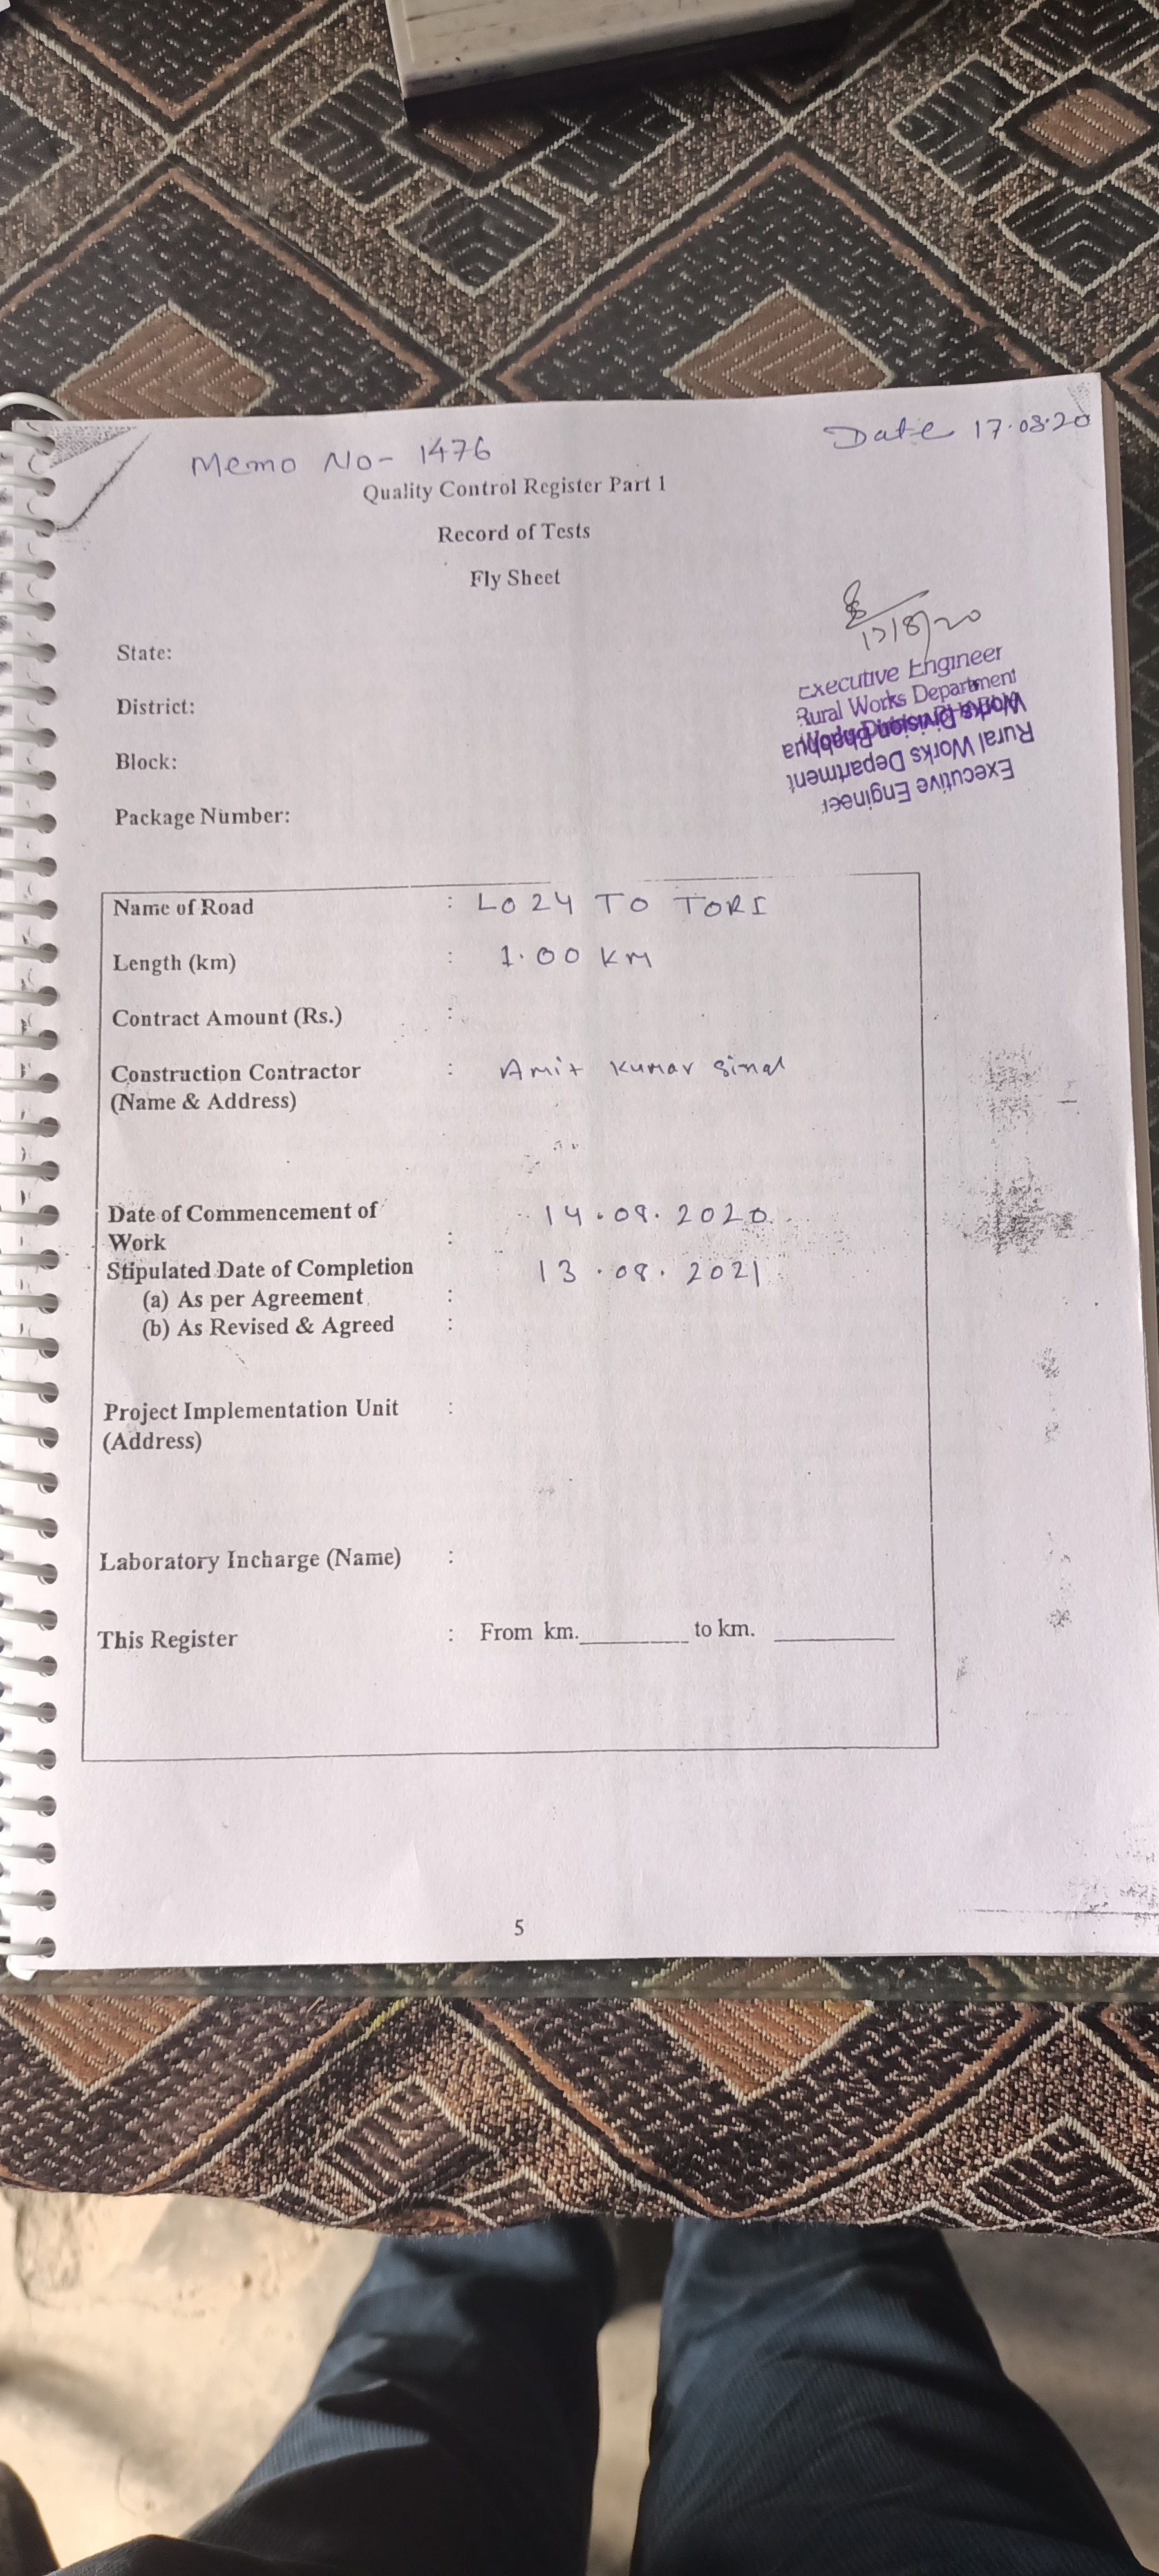 Memo No- 1476
Date 17.08.20
Quality Control Register Part 1
Record of Tests
Fly Sheet
17/8/20
Executive Engineer
Rural Works Department
Works Division Bhabhua
Rural Works Department
Executive Engineer
State:
District:
Block:
Package Number:
Name of Road : L024 TO TORI
Length (km) : 1.00 KM
Contract Amount (Rs.) :
Construction Contractor : Amit Kumar
(Name & Address)
Date of Commencement of 14.08.2020
Work :
Stipulated Date of Completion 13.08.2021
(a) As per Agreement :
(b) As Revised & Agreed :
Project Implementation Unit :
(Address)
Laboratory Incharge (Name) :
This Register : From km.________ to km. ________
5